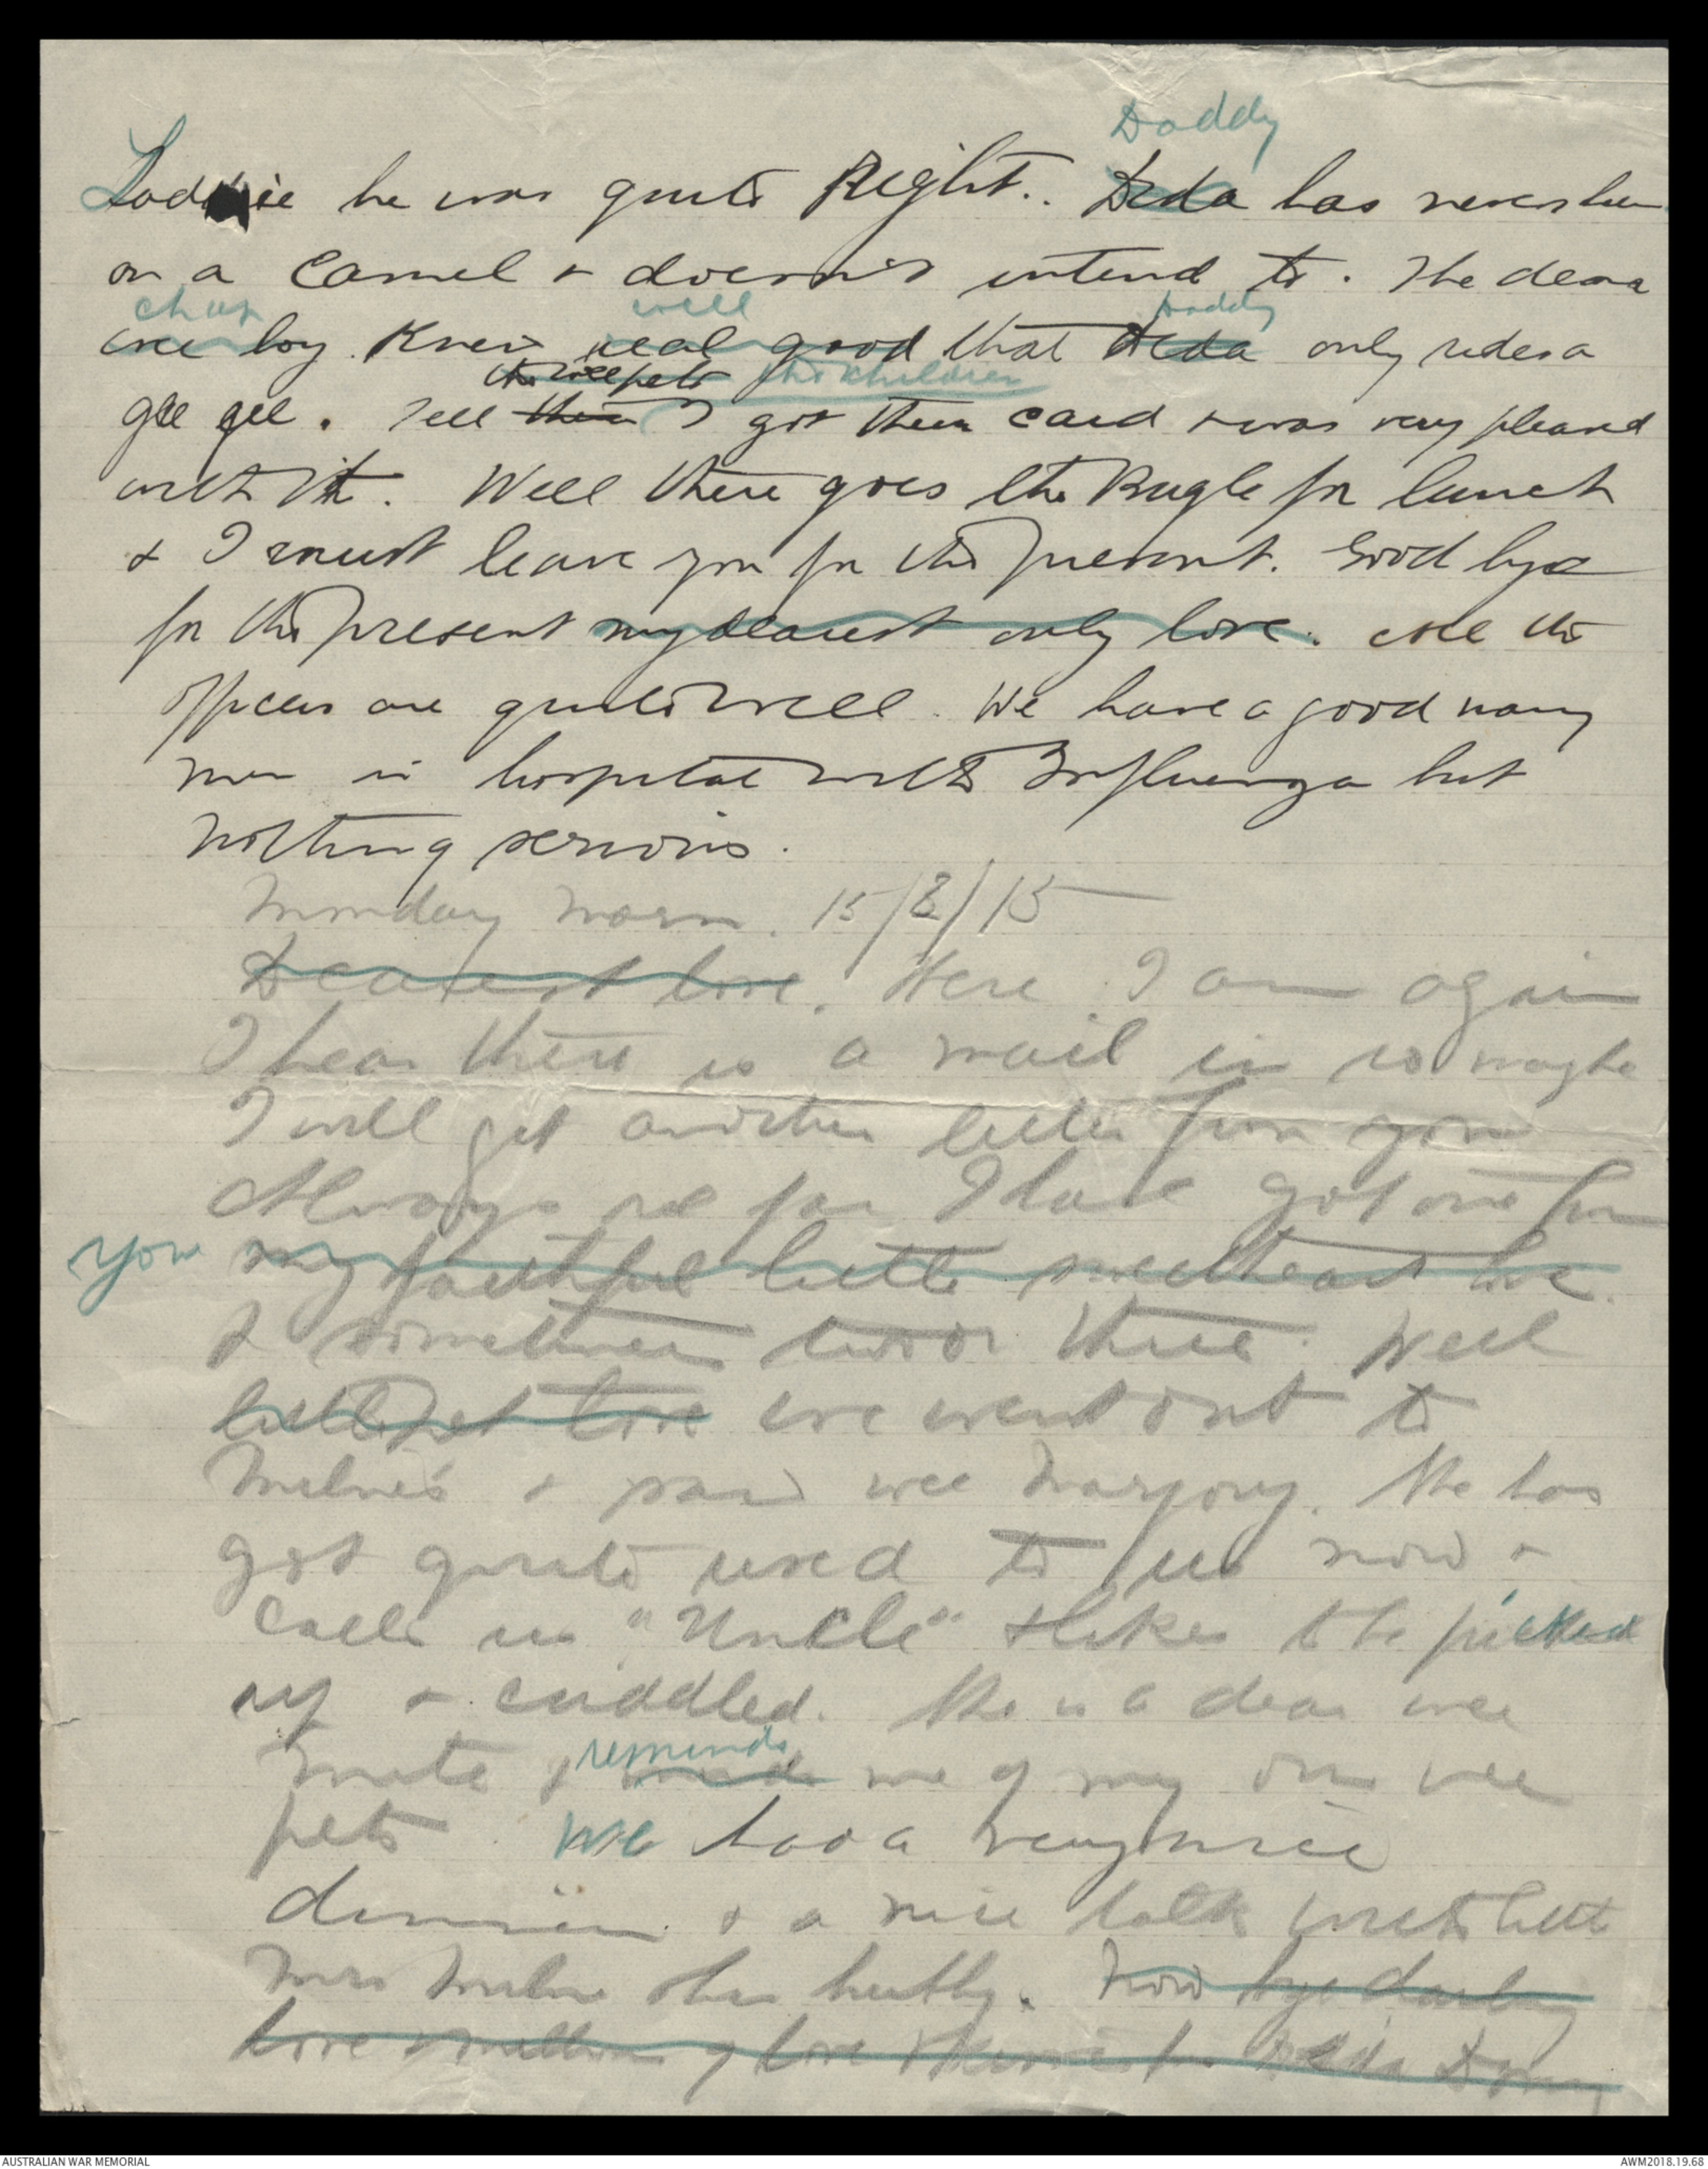 Daddy
Laddie he was quite Right.. Deda has never been
on a Camel & doesn't intend to. The dear
chap well Daddy
wee boy. Knew real good that Deda only rides a
the wee pets the children
gee gee. Tell them I got their card & was very pleased
with it. Well there goes the Bugle for lunch
& I must leave you for the present. Good bye
for the present my dearest only love. All the
officers are quite well. We have a good many
men in hospital with Influenza but
nothing serious.
Monday Morn. 15/3/15
Dearest love. Here I am again
I hear there is a mail in so maybe
I will get another letter from you
Always so far I have got one from
you my faithful little sweetheart love.
& sometimes two or three. Well
little pet love we went out to
Milne's & saw wee Marjory. She has
got quite used to us now &
calls us "Uncle" & likes to be picked
up & cuddled. She is a dear wee
reminds
mite & minds me of my own wee
pets. We had a very nice
dinner & a nice talk with little
Mrs Milne & her hubby. Now bye darling
love & millions of love & kisses from Deda